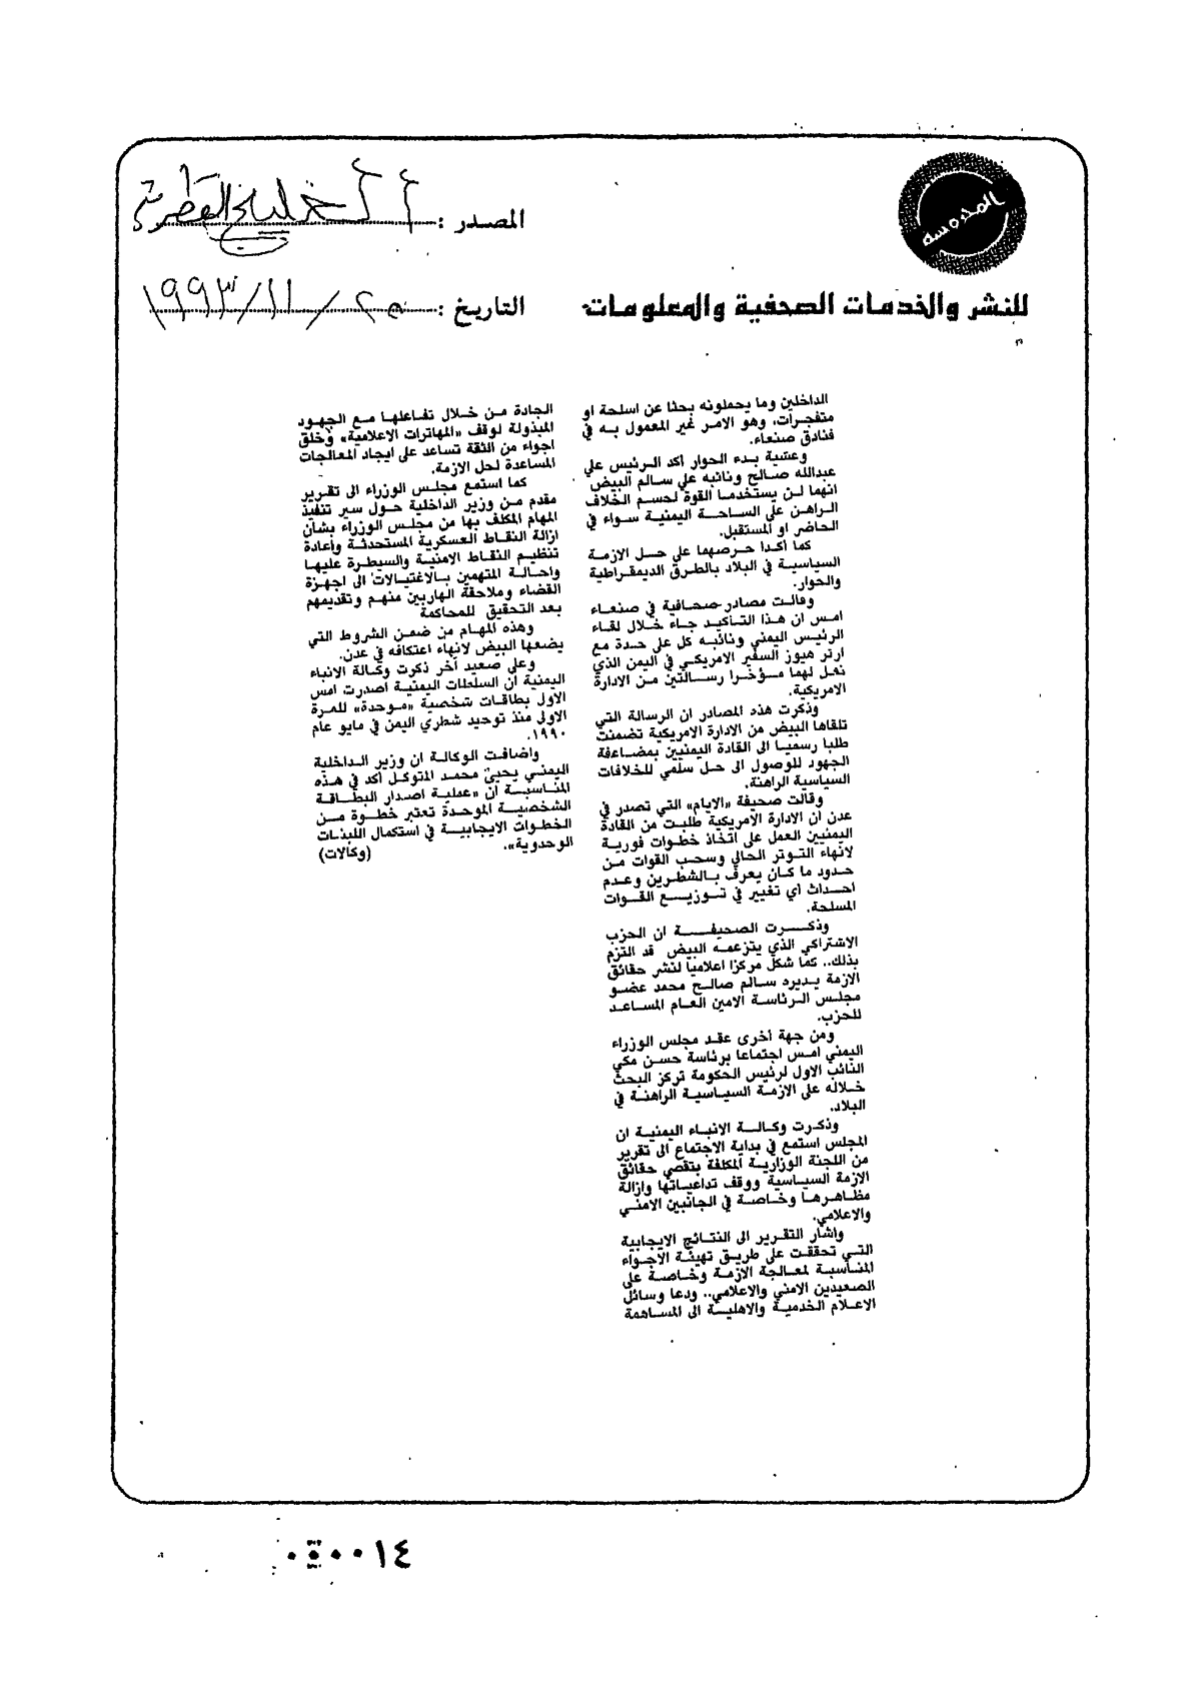 المحروسة
المصدر : الخليج القطرية
للنشر والخدمات الصحفية والمعلومات
التاريخ : ٢٥ / ١١ / ١٩٩٣
الداخلين وما يحملونه بحثا عن اسلحة او
متفجرات، وهو الامر غير المعمول به في
فنادق صنعاء.
وعشية بدء الحوار أكد الرئيس علي
عبدالله صالح ونائبه علي سالم البيض
انهما لن يستخدما القوة لحسم الخلاف
الراهن على الساحة اليمنية سواء في
الحاضر او المستقبل.
كما أكدا حرصهما على حل الازمة
السياسية في البلاد بالطرق الديمقراطية
والحوار.
وقالت مصادر صحافية في صنعاء
امس ان هذا التأكيد جاء خلال لقاء
الرئيس اليمني ونائبه كل على حدة مع
ارثر هيوز السفير الامريكي في اليمن الذي
نقل لهما مؤخرا رسالتين من الادارة
الامريكية.
وذكرت هذه المصادر ان الرسالة التي
تلقاها البيض من الادارة الامريكية تضمنت
طلبا رسميا الى القادة اليمنيين بمضاعفة
الجهود للوصول الى حل سلمي للخلافات
السياسية الراهنة.
وقالت صحيفة «الايام» التي تصدر في
عدن ان الادارة الامريكية طلبت من القادة
اليمنيين العمل على اتخاذ خطوات فورية
لانهاء التوتر الحالي وسحب القوات من
حدود ما كان يعرف بالشطرين وعدم
احداث اي تغيير في توزيع القوات
المسلحة.
وذكرت الصحيفة ان الحزب
الاشتراكي الذي يتزعمه البيض قد التزم
بذلك.. كما شكل مركزا اعلاميا لنشر حقائق
الازمة يديره سالم صالح محمد عضو
مجلس الرئاسة الامين العام المساعد
للحزب.
ومن جهة أخرى عقد مجلس الوزراء
اليمني امس اجتماعا برئاسة حسن مكي
النائب الاول لرئيس الحكومة تركز البحث
خلاله على الازمة السياسية الراهنة في
البلاد.
وذكرت وكالة الانباء اليمنية ان
المجلس استمع في بداية الاجتماع الى تقرير
من اللجنة الوزارية المكلفة بتقصي حقائق
الازمة السياسية ووقف تداعياتها وازالة
مظاهرها وخاصة في الجانبين الامني
والاعلامي.
واشار التقرير الى النتائج الايجابية
التي تحققت على طريق تهيئة الاجواء
المناسبة لمعالجة الازمة وخاصة على
الصعيدين الامني والاعلامي.. ودعا وسائل
الاعلام الخدمية والاهلية الى المساهمة
الجادة من خلال تفاعلها مع الجهود
المبذولة لوقف «المهاترات الاعلامية» وخلق
اجواء من الثقة تساعد على ايجاد المعالجات
المساعدة لحل الازمة.
كما استمع مجلس الوزراء الى تقرير
مقدم من وزير الداخلية حول سير تنفيذ
المهام المكلف بها من مجلس الوزراء بشأن
ازالة النقاط العسكرية المستحدثة وأعادة
تنظيم النقاط الامنية والسيطرة عليها
واحالة المتهمين بالاغتيالات الى اجهزة
القضاء وملاحقة الهاربين منهم وتقديمهم
بعد التحقيق للمحاكمة
وهذه المهام من ضمن الشروط التي
يضعها البيض لانهاء اعتكافه في عدن.
وعلى صعيد آخر ذكرت وكالة الانباء
اليمنية ان السلطات اليمنية اصدرت امس
الاول بطاقات شخصية «موحدة» للمرة
الاولى منذ توحيد شطري اليمن في مايو عام
١٩٩٠.
واضافت الوكالة ان وزير الداخلية
اليمني يحيى محمد المتوكل أكد في هذه
المناسبة ان «عملية اصدار البطاقة
الشخصية الموحدة تعتبر خطوة من
الخطوات الايجابية في استكمال اللبنات
الوحدوية». (وكالات)
٠٥٠٠١٤